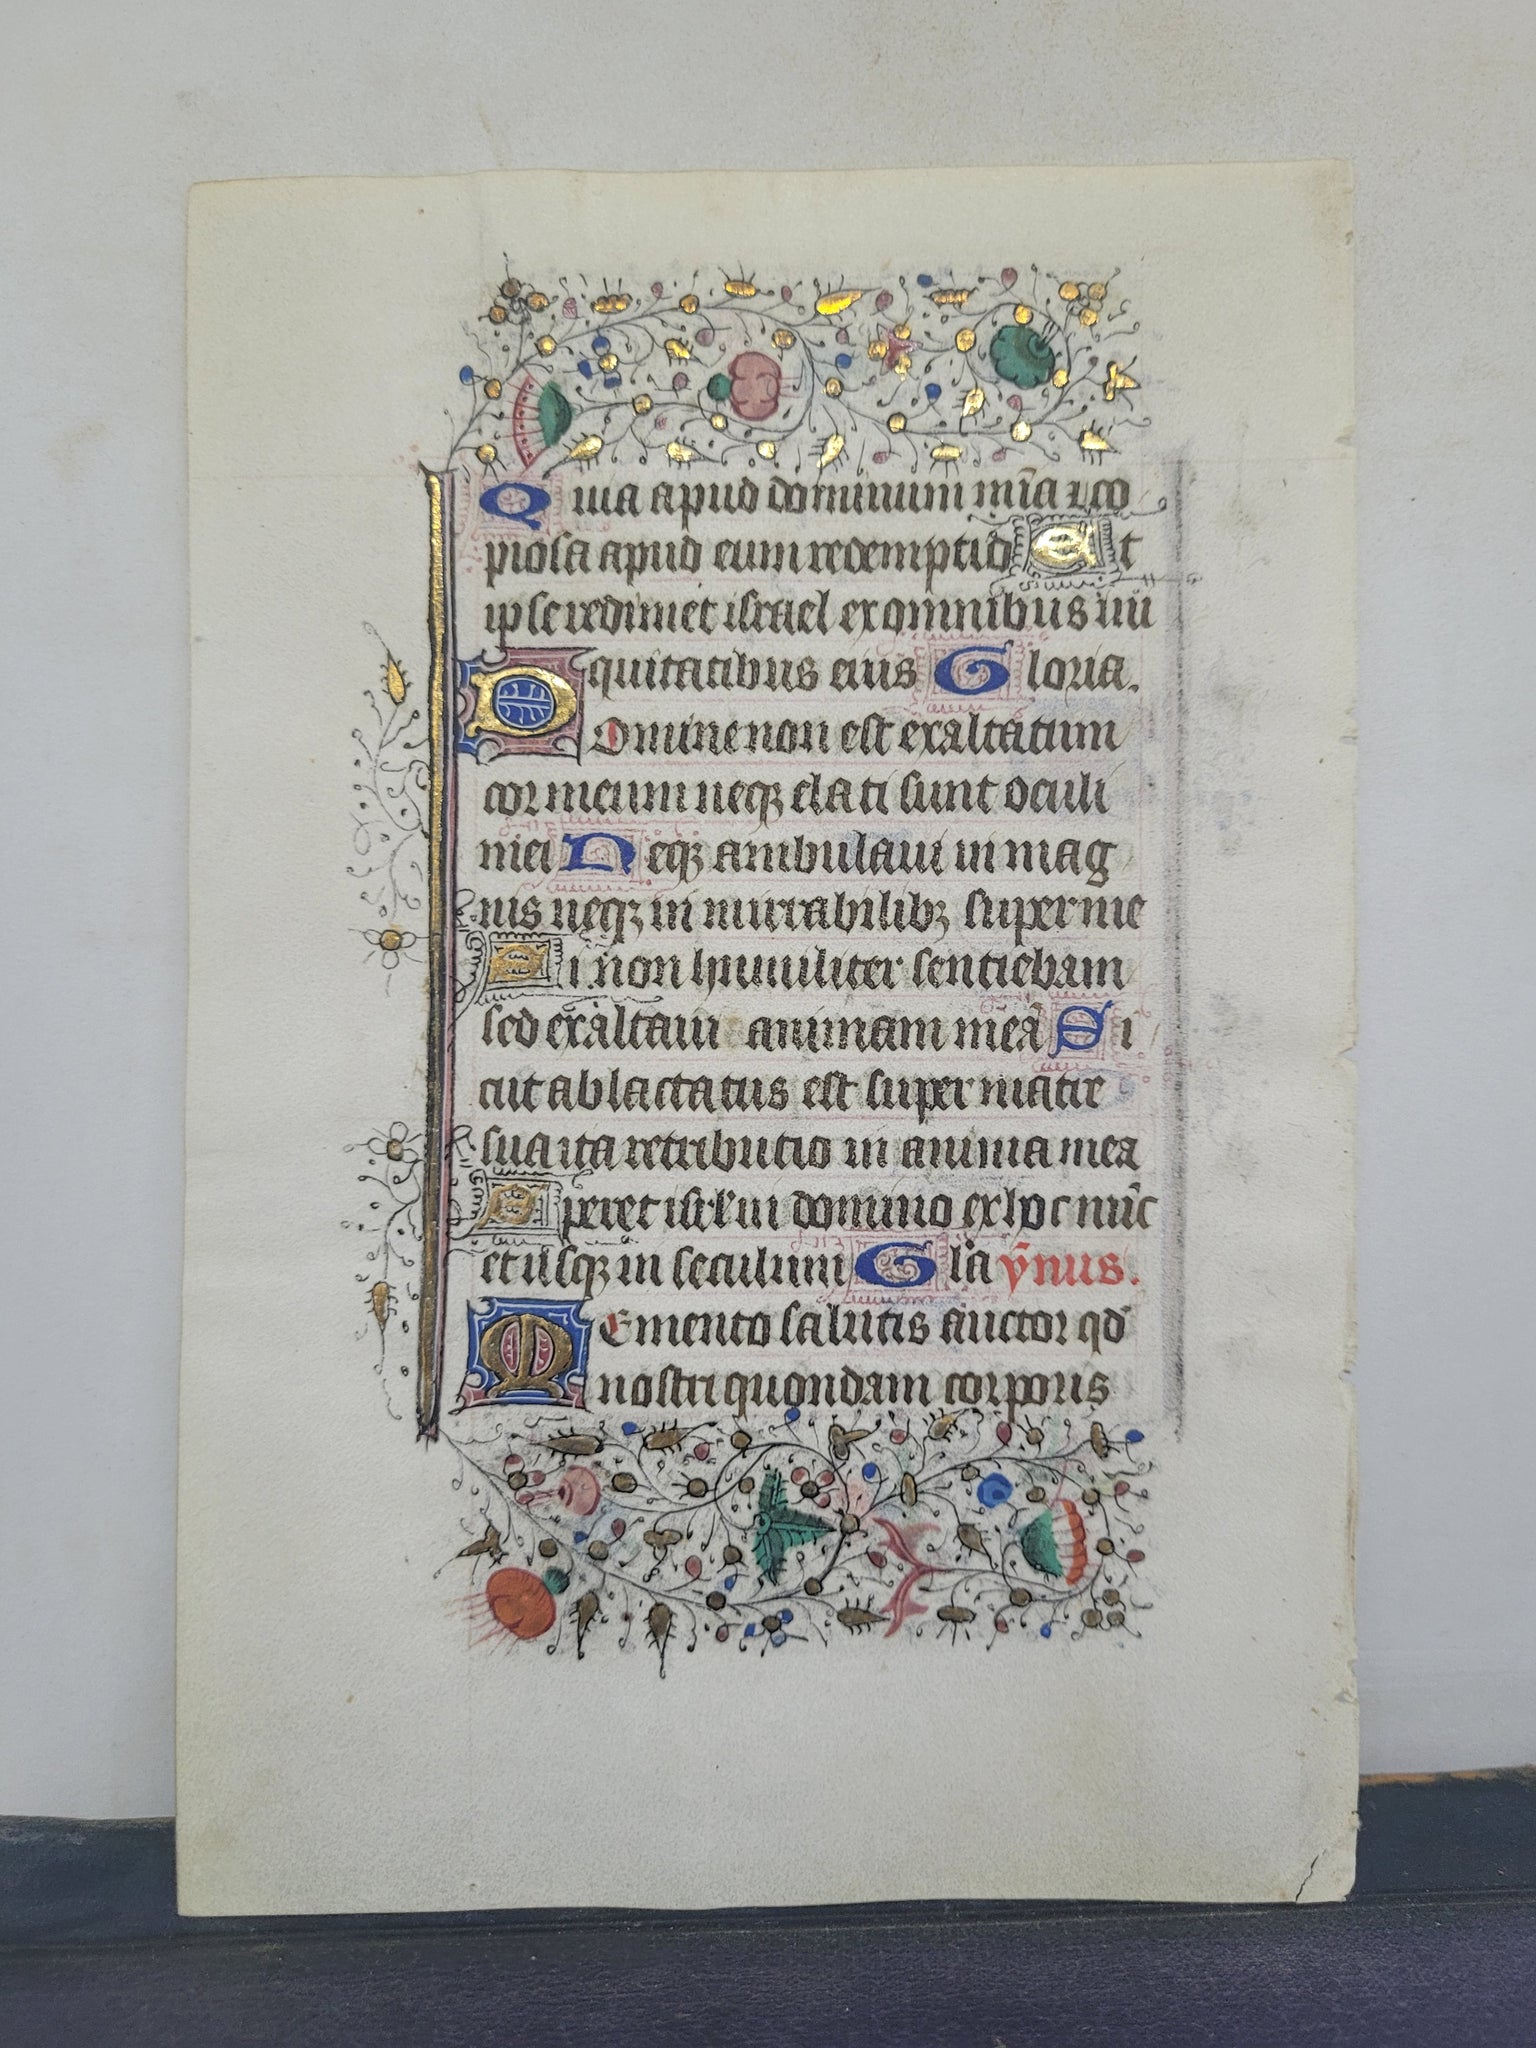 Quia apud dominum mīa ⁊ co
piosa apud eum redemptio Et
ipse redimet israel ex omnibus ini
quitatibus eius Gloria.
Domine non est exaltatum
cor meum neqꝫ elati sunt oculi
mei Neqꝫ ambulaui in mag
nis neqꝫ in mirabilibꝫ super me
Si non humiliter sentiebam
sed exaltaui animam meā Si
cut ablactatus est super matre
sua ita retributio in anima mea
Speret isrl̄ in domino ex hoc nūc
et usqꝫ in seculum Glā ȳnus.
Memento salutis auctor qd̄
nostri quondam corporis